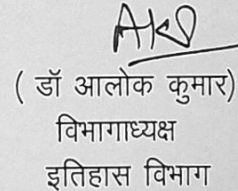 ( डॉ आलोक कुमार)
विभागाध्यक्ष
इतिहास विभाग